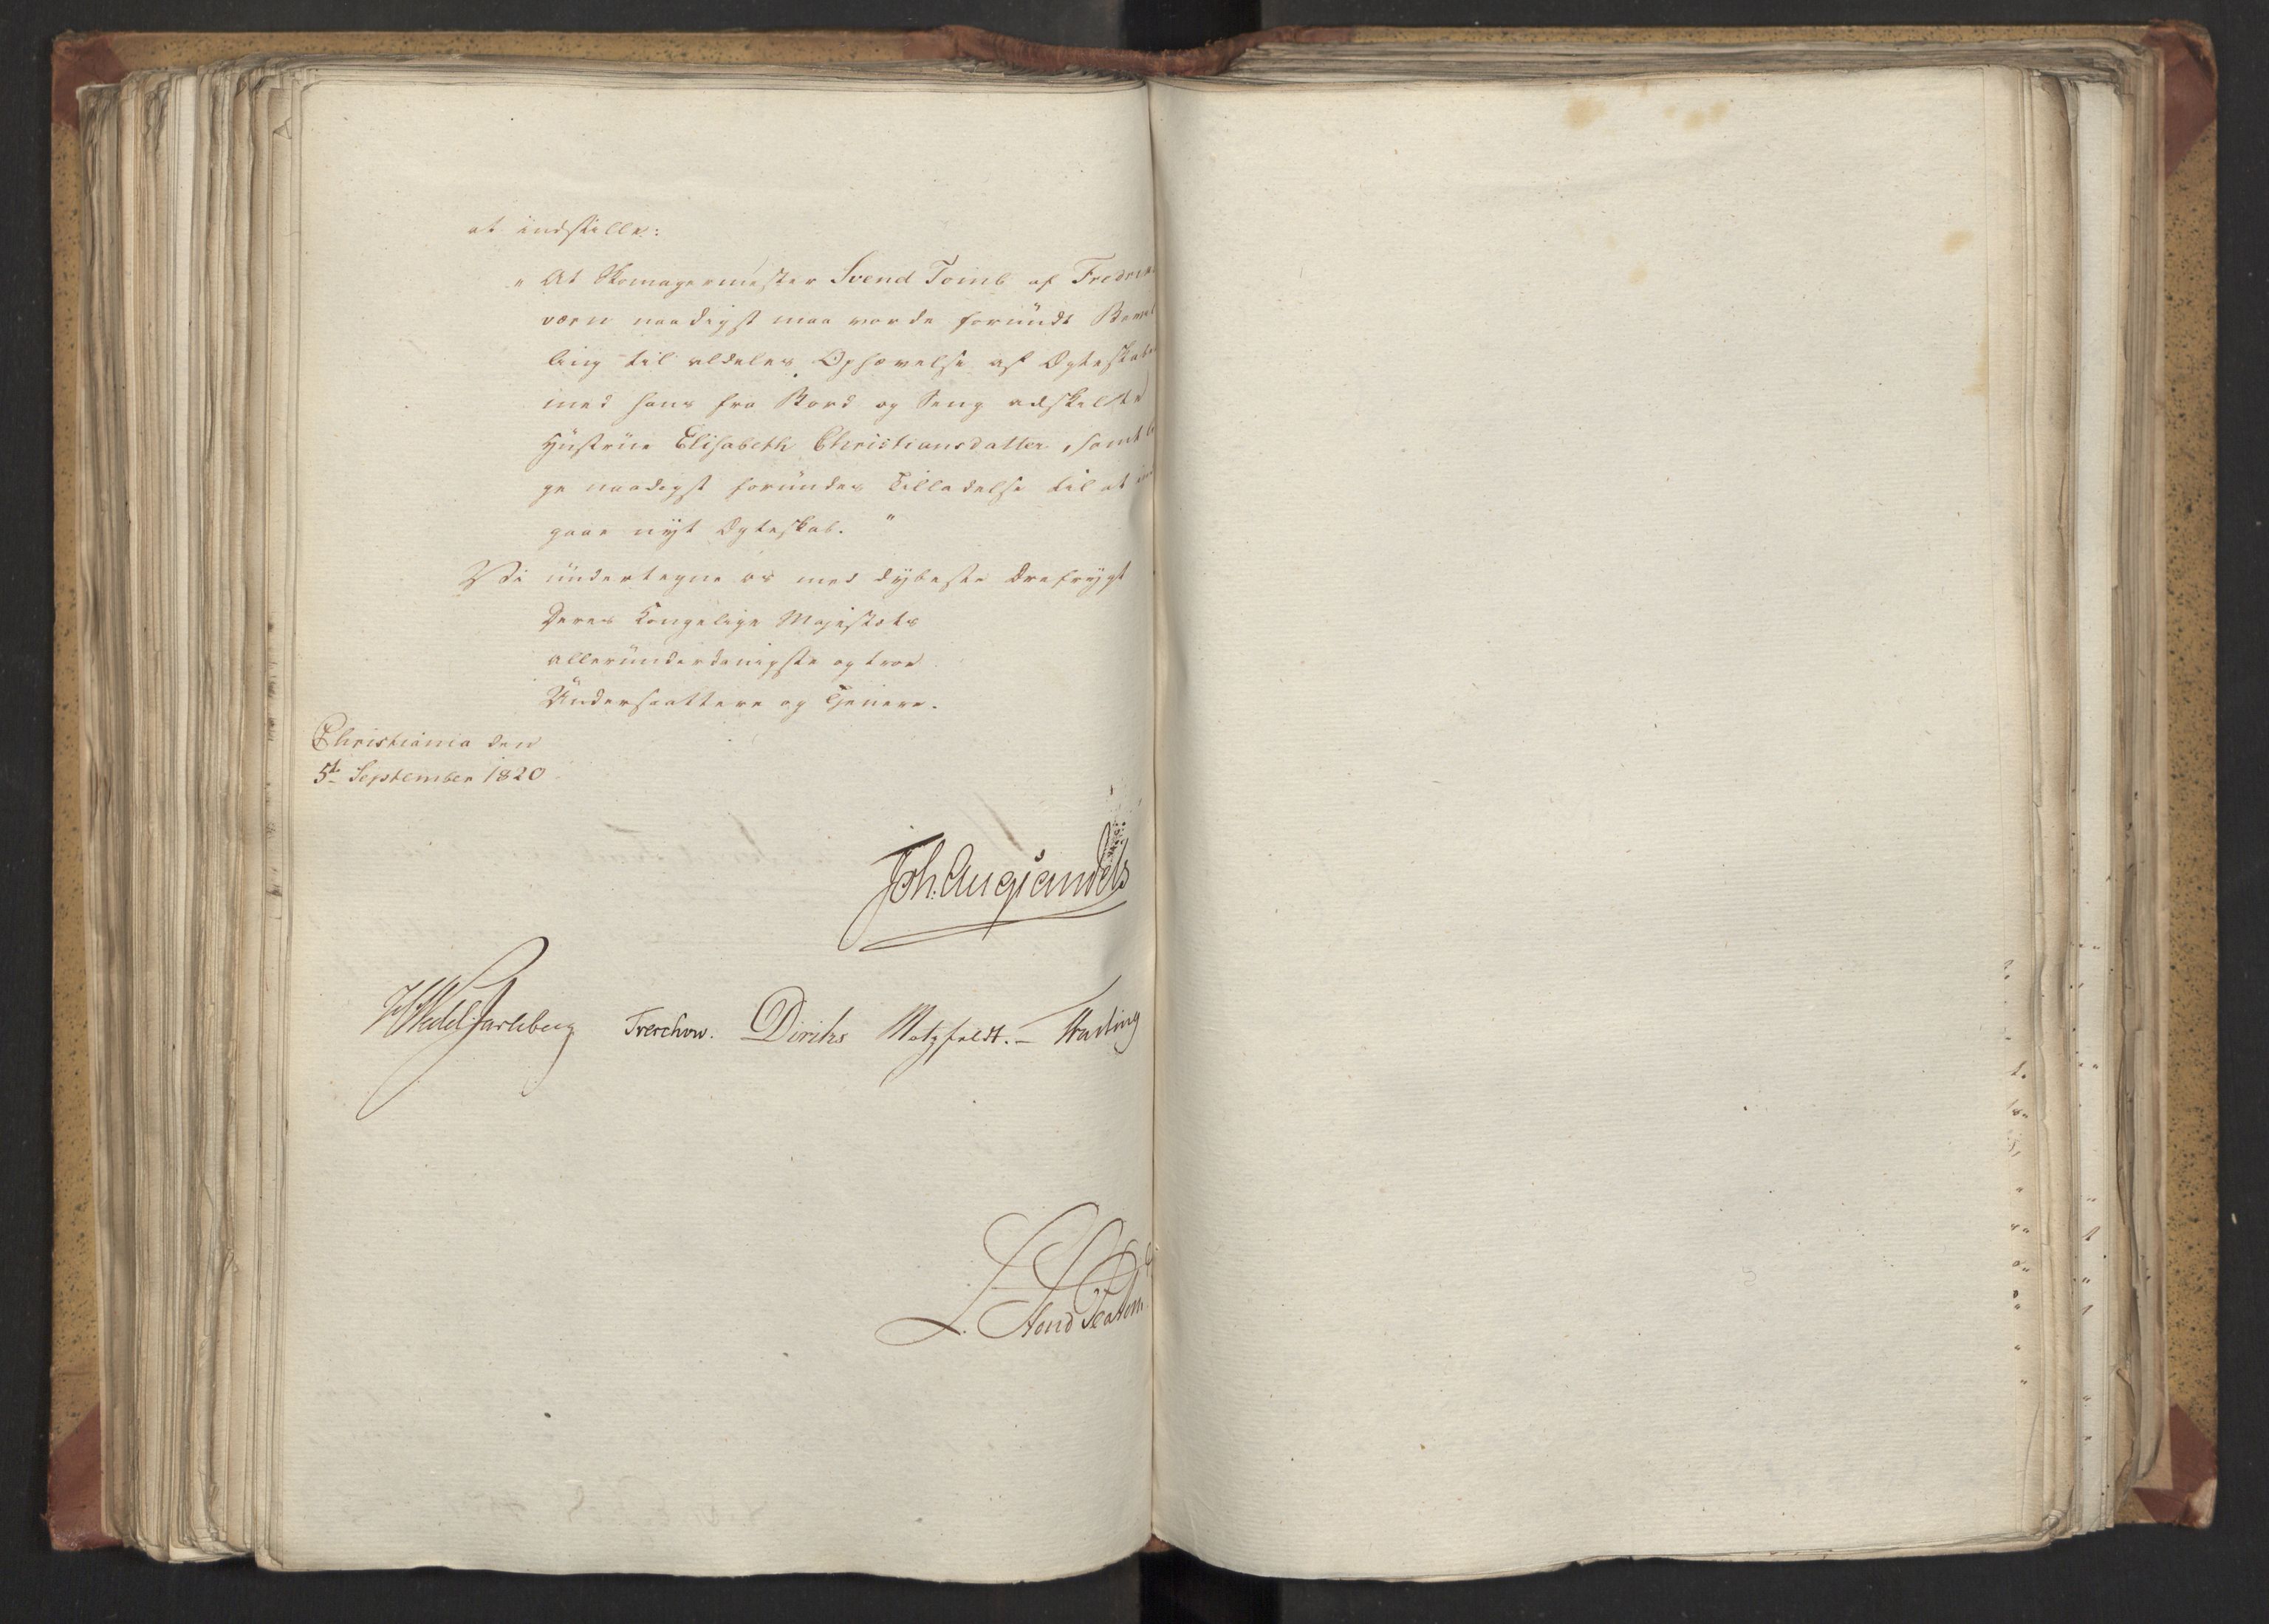 at indstille:
"At Skomagermester Svend Tomb af Fredri
værn naadigst maa vorde forundt Bevil
ling til aldeles Ophævelse af Ægteskabe
med hans fra Bord og Seng adskilte
Hustrue Elisabeth Christiansdatter, samt
ge naadigst forundes Tilladelse til at in
gaae nyt Ægteskab."
Vi undertegne os med dybeste Ærefrygt
Deres Kongelige Majestæts
allerunderdanigste og troe
Undersaattere og Tjenere.
Christiania den
5te September 1820
Joh. Aug Sandels
HWedel Jarlsberg Treschow. Diriks Motzfeldt. - Fasting
L. Stoud Platou